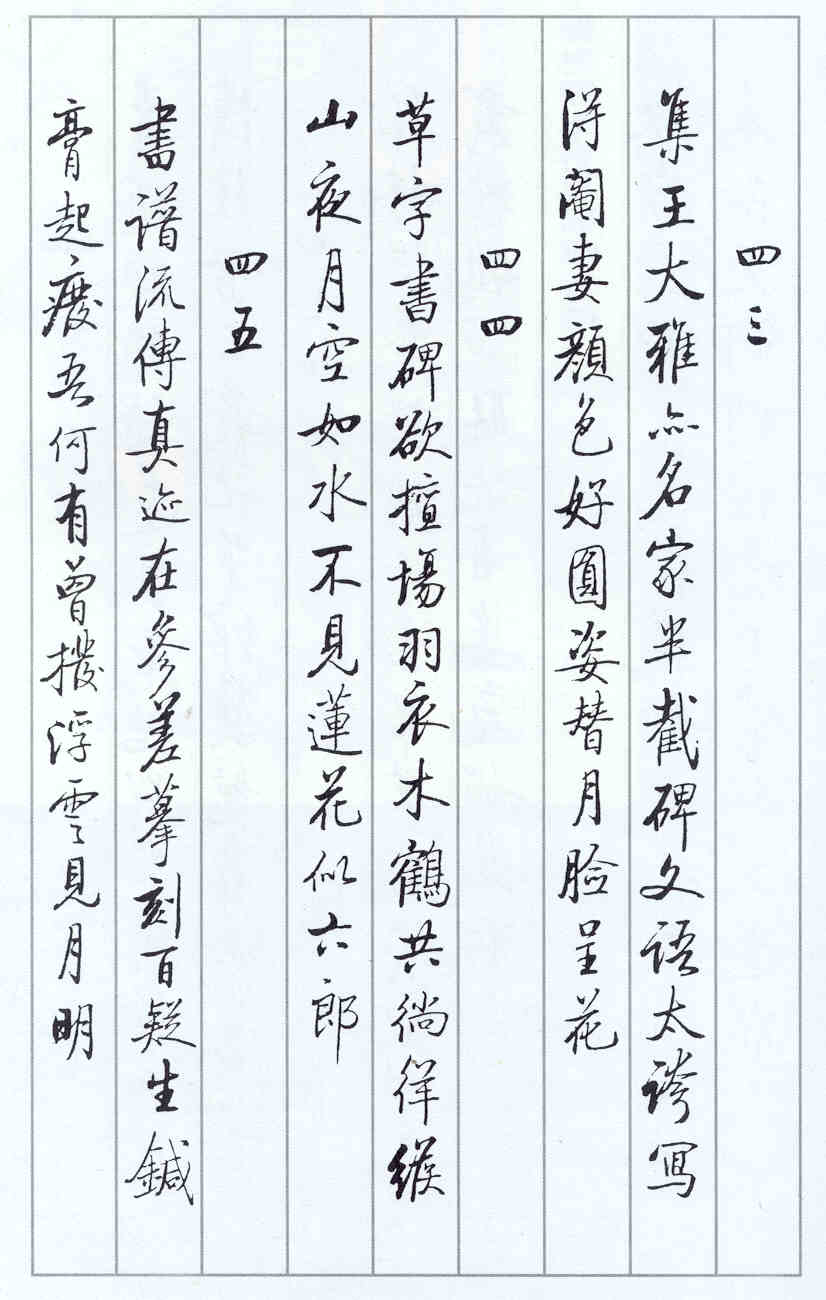 四三
集王大雅亦名家半截碑文語太誇寫
得閹妻顏色好圓姿替月臉呈花
四四
草字書碑欲擅場羽衣木鶴共徜徉緱
山夜月空如水不見蓮花似六郎
四五
書譜流傳真迹在參差摹刻百疑生鍼
膏起廢吾何有曾撥浮雲見月明